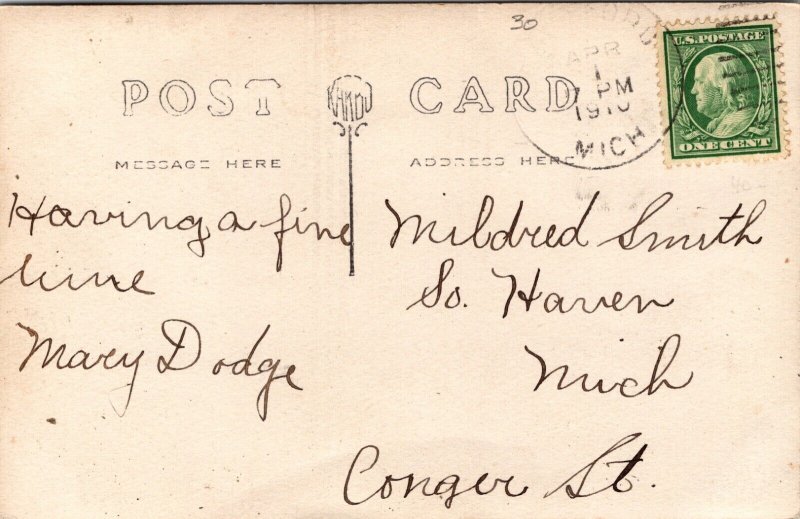 30
POST CARD
KARBO
MESSAGE HERE
ADDRESS HERE
APR
1 PM
1910
MICH
U.S. POSTAGE
ONE CENT
Having a fine
time
Mary Dodge
Mildred Smith
So. Haven
Mich
Conger St.